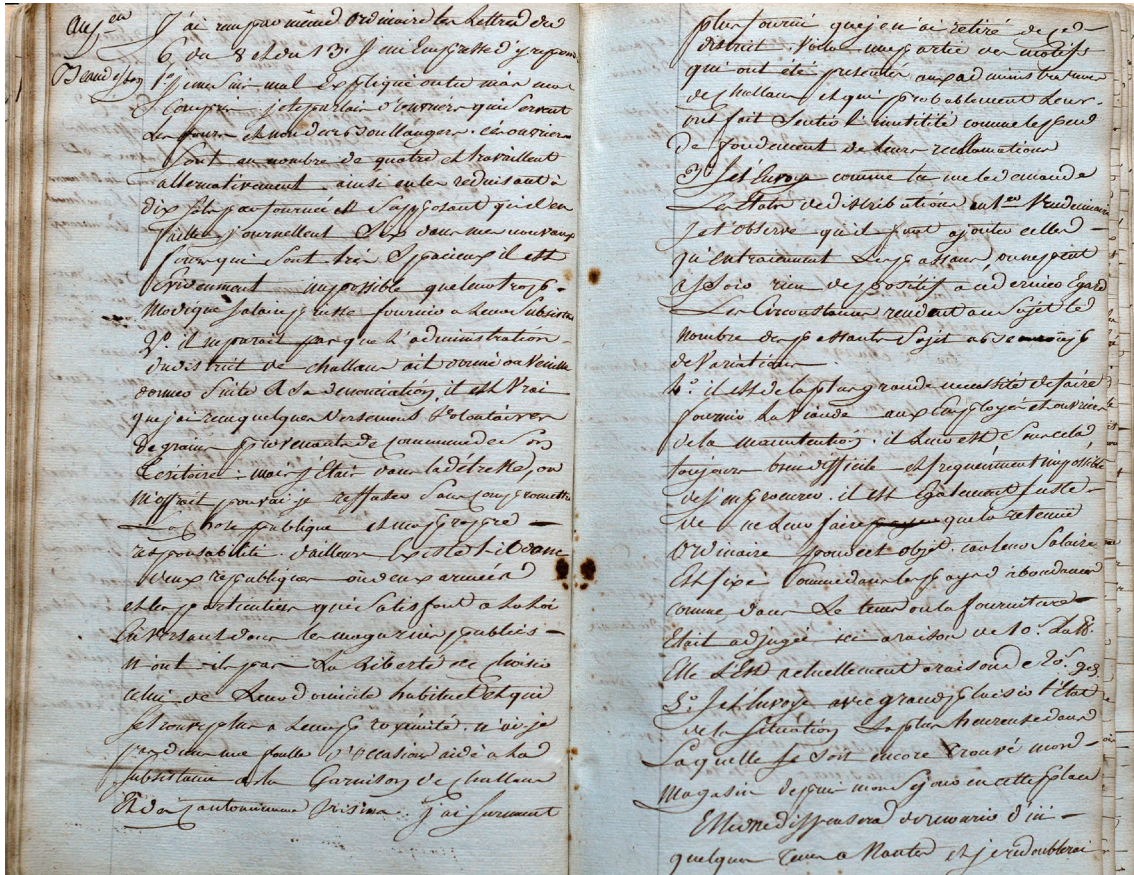 Au Cen
Beaudesson
J'ai reçu par même ordinaire tes Lettres du
6, du 8 et du 13. Je m'Empresse d'y repondre
1.º je me suis mal Expliqué ou tu m'as mal
Compris. je te parlais d'ouvriers qui servent
Les fours et non des Boullangers. ces ouvriers
sont au nombre de quatre et travaillent
alternativement. ainsi en les reduisant à
dix sols par fournée et supposant qu'il en
faille journellement Six dans mes nouveaux
fours qui sont très Spacieux il est
Evidemment impossible que leur trop
Modique salaire puisse fournir à Leur Subsistance
2.º il ne parait pas que L'administration
du district de challans ait donné ou Veuille
donner Suite à Sa denonciation, il est Vrai
que j'ai reçu quelques Versements Volontaires
de grains provenants de communes de Son
Territoire. mais j'Etais dans la détresse, on
m'offrait pouvai-je reffuser Sans Compromettre
La chose publique et ma propre
responsabilité. d'ailleurs Existe t-il donc
deux republiques ou deux armées
et les particuliers qui satisfont à La Loi
En versant dans les magazins publics
n'ont-ils pas La Liberté de choisir
celui de Leur domicile habituel et qui
se trouve plus à Leur proximité. n'ai-je
pas dans une foulle d'occasions aidé à La
subsistance de la Garnison de challans
Et des Cantonnemens Voisins. j'ai surement
plus fourni que je n'ai retiré de ce
district. Voila une partie des motifs
qui ont été presentés aux administrateurs
de challans et qui probablement Leur
ont fait Sentir L'inutilité comme le peu
de fondement de leurs reclamations
3.º Je t'Envoye comme tu me le demande
Les Etats de distributions au 1er Vendemiaire
Je t'observe qu'il faut ajouter celles
qu'entrainent Les passans on ne peut
assoir rien de positif à ce dernier Egard
Les Circonstances rendant au Sujet le
Nombre des passants Sujet à
de Variations.
4.º il est de la plus grande necessité de faire
fournir La Viande aux Employés et ouvriers
de la manutention. il Leur est Sans cela
toujours bien difficile et frequemment impossible
de s'en procurer. il est Egalement juste
de ne Leur faire que la retenue
Ordinaire pour cet objet. car leur Salaire
Est fixe Comme dans les pays d'abondance
comme dans Le tems ou la fourniture
Etait adjugée ici à raison de 10.s La lt.
Elle L'Est actuellement à raison de 20.s
5.º Je t'Envoye avec grand plaisir L'Etat
de la Situation La plus heureuse dans
Laquelle se Soit encore trouvé mon
Magasin depuis mon Sejour en cette place
Elle me dispensera d'ennuier d'ici
quelques tems à Nantes et je redoublerai